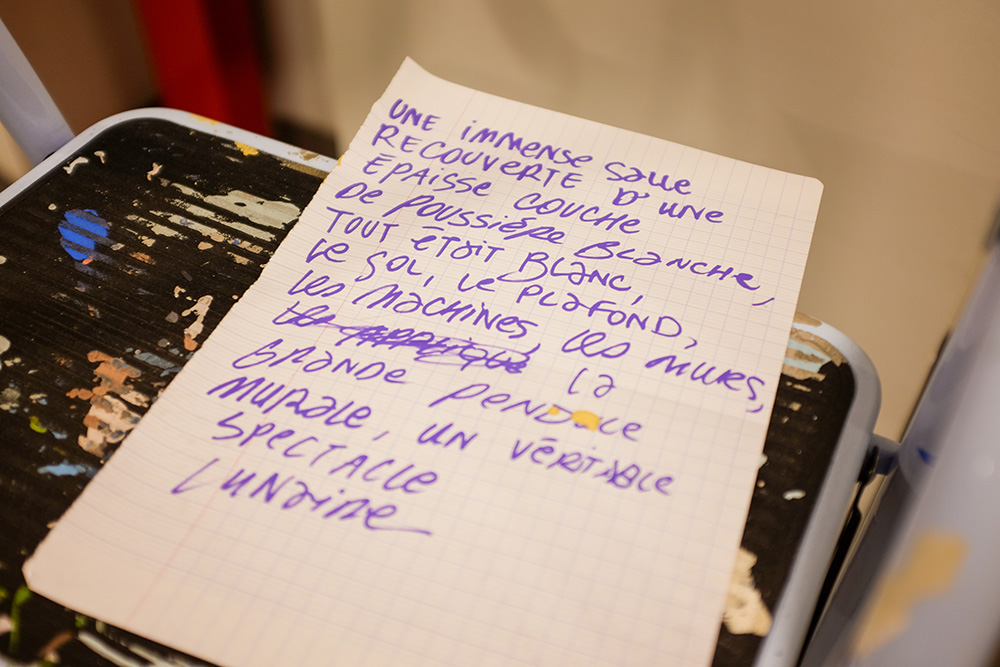 UNE IMMENSE SALLE
RECOUVERTE D'UNE
ÉPAISSE COUCHE
DE POUSSIÈRE BLANCHE,
TOUT ÉTAIT BLANC,
LE SOL, LE PLAFOND,
LES MACHINES, LES MURS,
LA
GRANDE PENDULE
MURALE, UN VÉRITABLE
SPECTACLE
LUNAIRE